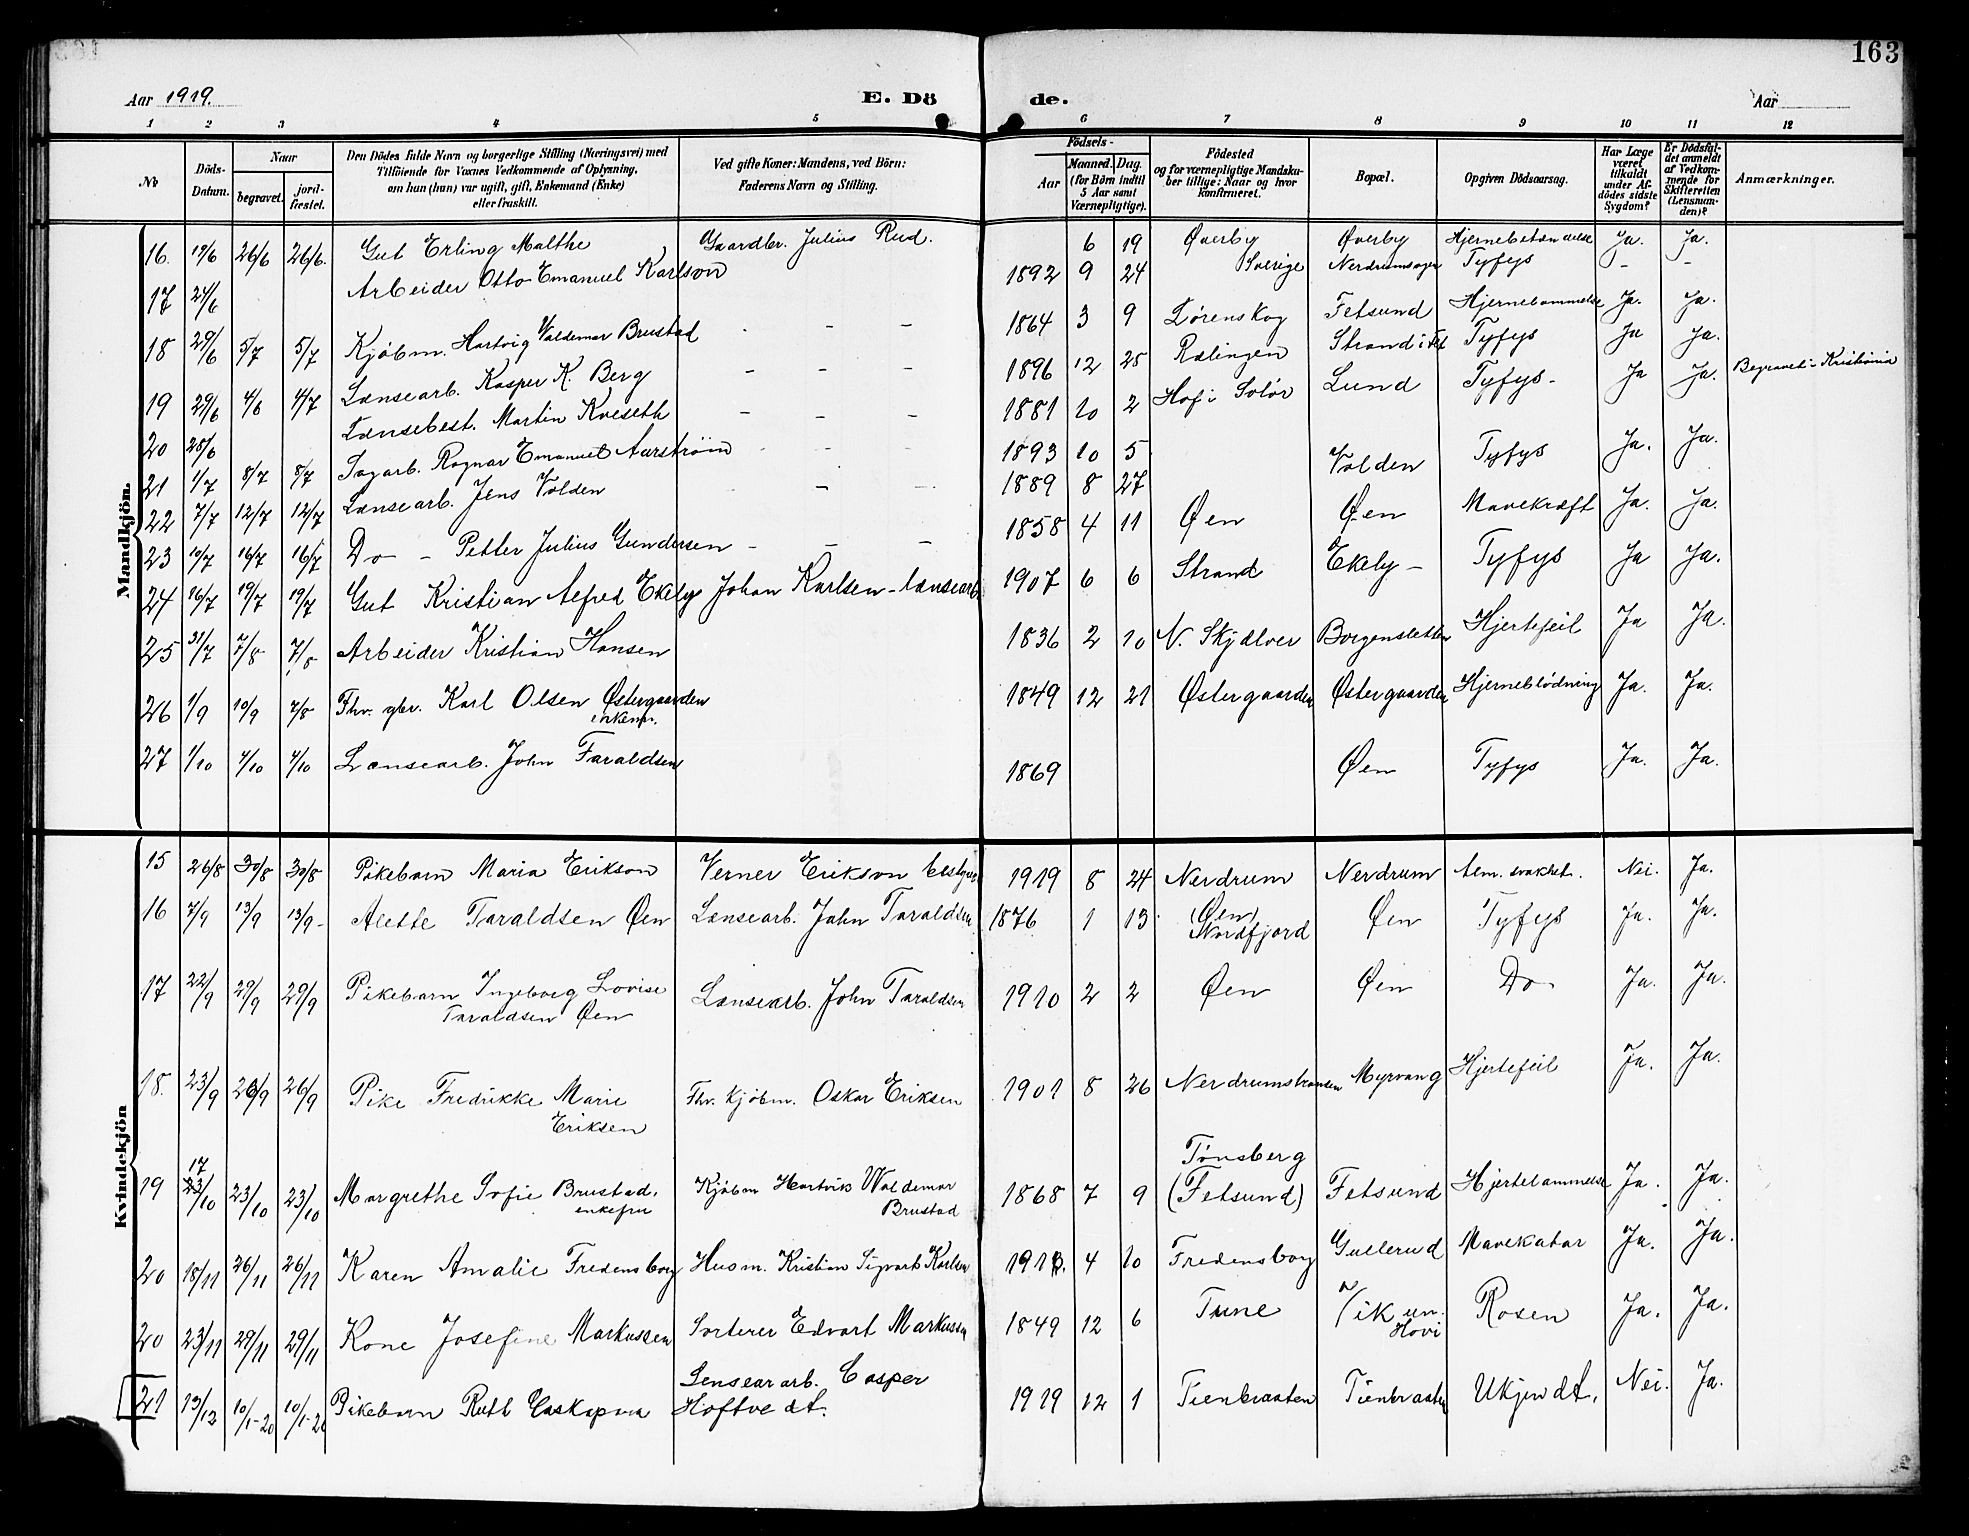 163
Aar 1919. E. Dö de. Aar
1 2 3 4 5 6 7 8 9 10 11 12
No
Döds-Datum.
Naar
begravet.
jord-fæstet.
Den Dödes fulde Navn og borgerlige Stilling (Næringsvei) med
Tilföiende for Voxnes Vedkommende af Oplysning,
om han (hun) var ugift, gift, Enkemand (Enke)
eller fraskilt.
Ved gifte Koner: Mandens, ved Börn:
Faderens Navn og Stilling.
Födsels-
Aar
Maaned. Dag.
(for Börn indtil
5 Aar samt
Værnepligtige).
Födested
og for værnepligtige Mandska-
ber tillige: Naar og hvor
konfirmeret.
Bopæl.
Opgiven Dödsaarsag.
Har Læge
været
tilkaldt
under Af-
dödes sidste
Sygdom?
Er Dödsfal-
det anmeldt
af Vedkom-
mende for
Skifteretten
(Lensman-
den)?
Anmærkninger.
Mandkjön.
16. 19/6 26/6 26/6. Gut Erling Malthe Gaardbr. Julius Rud. 6 19 Øverby Øverby Hjernebetændelse Ja. Ja.
17 24/6 Arbeider Otto Emanuel Karlson 1892 9 24 Sverige Nerdrumsager Tyfys - -
18 29/6 5/7 5/7 Kjöbm. Hartvig Valdemar Brustad - - - 1864 3 9 Lørenskog Fetsund Hjernelammelse Ja. Ja.
19 29/6 4/6 4/7 Lænsearb. Kasper K. Berg - - - 1896 12 25 Rælingen Strand i Fet Tyfys Ja Ja.
20 28/6 Lænsebest. Martin Kveseth - - - 1881 10 2 Hof i Solør Lund Tyfys - Ja Ja. Begravet i Kristiania
21 1/7 8/7 8/7 Sagarb. Ragnar Emanuel Aurstrøm - - 1893 10 5
22 7/7 12/7 12/7 Lænsearb. Jens Volden - - - 1889 8 27 Volden Tyfys Ja. Ja.
23 10/7 16/7 16/7 Do - Petter Julius Gundersen - - - 1858 4 11 Øen Øen Mavekræft Ja. Ja.
24 16/7 19/7 19/7 Gut Kristian Alfred Ekely Johan Karlsen - lænsearb. 1907 6 6 Strand Ekely - Tyfys Ja Ja.
25 31/7 7/8 7/8 Arbeider Kristian Hansen 1836 2 10 N. Skjælver Borgensletten Hjertefeil Ja Ja.
26 1/9 10/9 7/8 Fhv. gbr. Karl Olsen Østergaarden 1849 12 21 Østergaarden Østergaarden Hjerneblödning Ja. Ja.
enkem.
27 1/10 4/10 4/10 Lænsearb. John Taraldsen 1869 Øen Tyfys Ja. Ja.
Kvindekjön
15 26/8 30/8 30/8 Pikebarn Maria Erikson Verner Erikson 1919 8 24 Nerdrum Nerdrum Alm. svakhet. Nei. Ja.
16 7/9 13/9 13/9 - Alette Taraldsen Øen Lænsearb. John Taraldsen 1876 1 13. (Øen) Øen Tyfys Ja. Ja.
Nordfjord
17 22/9 29/9 29/9 Pikebarn Ingeborg Lovise Lænsearb. John Taraldsen 1910 2 2 Øen Øen Do Ja. Ja.
Taraldsen Øen
18. 23/9 26/9 26/9 Pike Fredrikke Marie Fhv. Kjöbm. Oskar Eriksen 1901 8 26 Nerdrumstranden Myrvang Hjertefeil Ja. Ja.
Eriksen
Tönsberg
19 17 23/10 23/10 23/10 Margrethe Sofie Brustad. Kjöbm Hartvik Waldemar 1868 7 9 (Fetsund) Fetsund Hjertelammelse Ja. Ja.
enkefru Brustad
20 18/11 26/11 26/11 Karen Amalie Fredensborg Husm. Kristian Sigvart Karlsen 1913. 4 10 Fredensborg Gullerud Mavekatar Ja. Ja.
20 23/11 29/11 29/11 Kone Josefine Markussen Sorterer Edvart Markussen 1849 12 6 Tune Vik un. Rosen Ja. Ja.
Hovi
21 13/12 10/1-20 10/1-20 Pikebarn Ruth Lenseararb. Casper 1919 12 1 Tienbraaten Tienbraaten Ukjendt. Nei. Ja.
Hoftvedt.